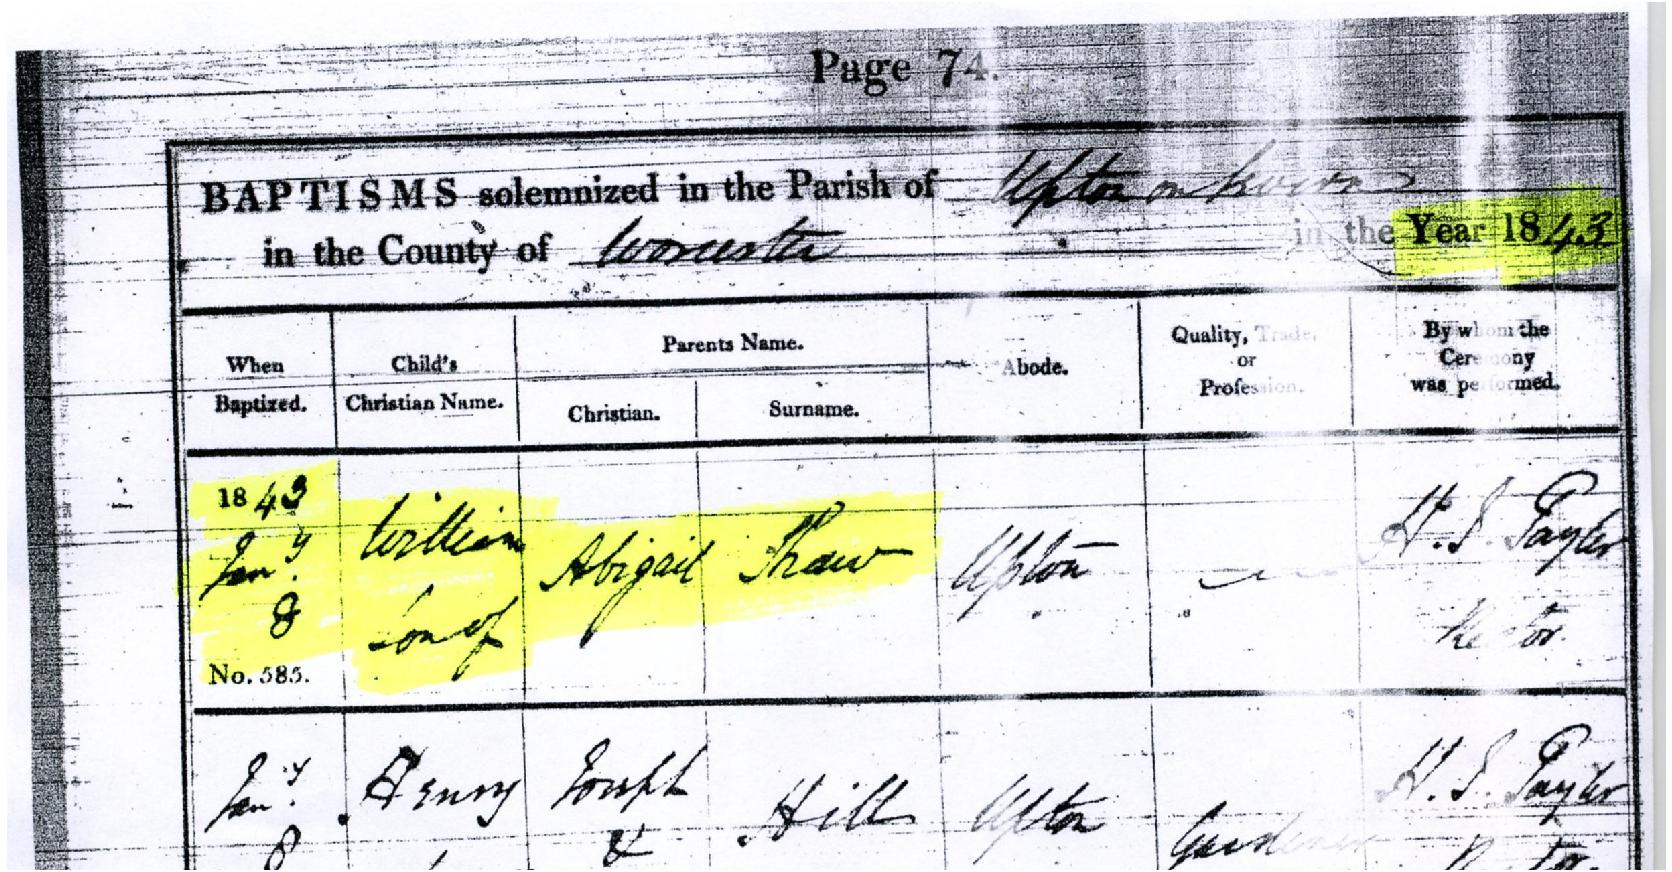 Page 74.
BAPTISMS solemnized in the Parish of Upton on Severn
in the County of Worcester in the Year 1843
When Baptized.
Child's Christian Name.
Parents Name.
Christian.
Surname.
Abode.
Quality, Trade, or Profession.
By whom the Ceremony was performed.
1843
Jany. 8
No. 585.
William
Son of
Abigail
Upton
H. J. Taylor
Rector
Jany. 8
Henry
Joseph
&
Hill
Upton
Gardener
H. J. Taylor
Rector